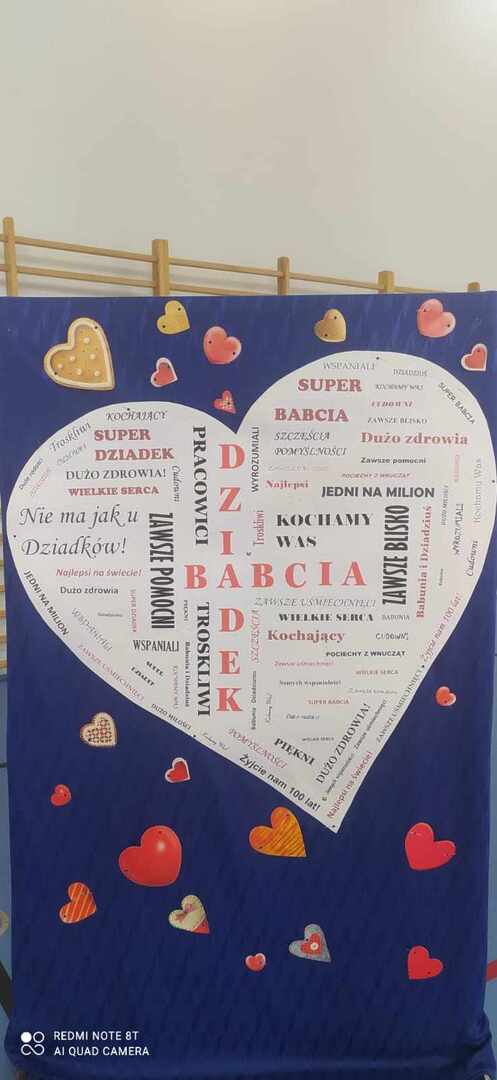 WSPANIALI
DZIADZIUŚ
SUPER
KOCHAMY WAS
SUPER BABCIA
CUDOWNI
BABCIA
ZAWSZE BLISKO
SZCZĘŚCIA
POMYŚLNOŚCI
Dużo zdrowia
Zawsze pomocni
POCIECHY Z WNUCZĄT
Najlepsi
JEDNI NA MILION
WYROZUMIALI
Troskliwi
KOCHAMY
WAS
ZAWSZE BLISKO
Babunia i Dziadziuś
DUŻO MIŁOŚCI
WYROZUMIALI
Kochamy Was
Cudowni
KOCHAJĄCY
Troskliwi
SUPER
DZIADEK
DUŻO ZDROWIA!
WIELKIE SERCA
Cudowni
PRACOWICI
Nie ma jak u
Dziadków!
ZAWSZE POMOCNI
Najlepsi na świecie!
Dużo zdrowia
JEDNI NA MILION
SUPER DZIADEK
WSPANIALI
PIĘKNI
Babunia i Dziadziuś
TROSKLIWI
DZIADEK
BABCIA
ZAWSZE UŚMIECHNIĘCI
WIELKIE SERCA
BABUNIA
Kochający
CUDOWNI
POCIECHY Z WNUCZĄT
SZCZĘŚCIA
Zawsze uśmiechnięci
WIELKIE SERCA
SUPER BABCIA
Życie nam 100 lat!
ZAWSZE UŚMIECHNIĘCI
ZAWSZE UŚMIECHNIĘCI
DUŻO MIŁOŚCI
POMYŚLNOŚCI
PIĘKNI
DUŻO ZDROWIA!
Żyjcie nam 100 lat!
Najlepsi na świecie!
REDMI NOTE 8T
AI QUAD CAMERA